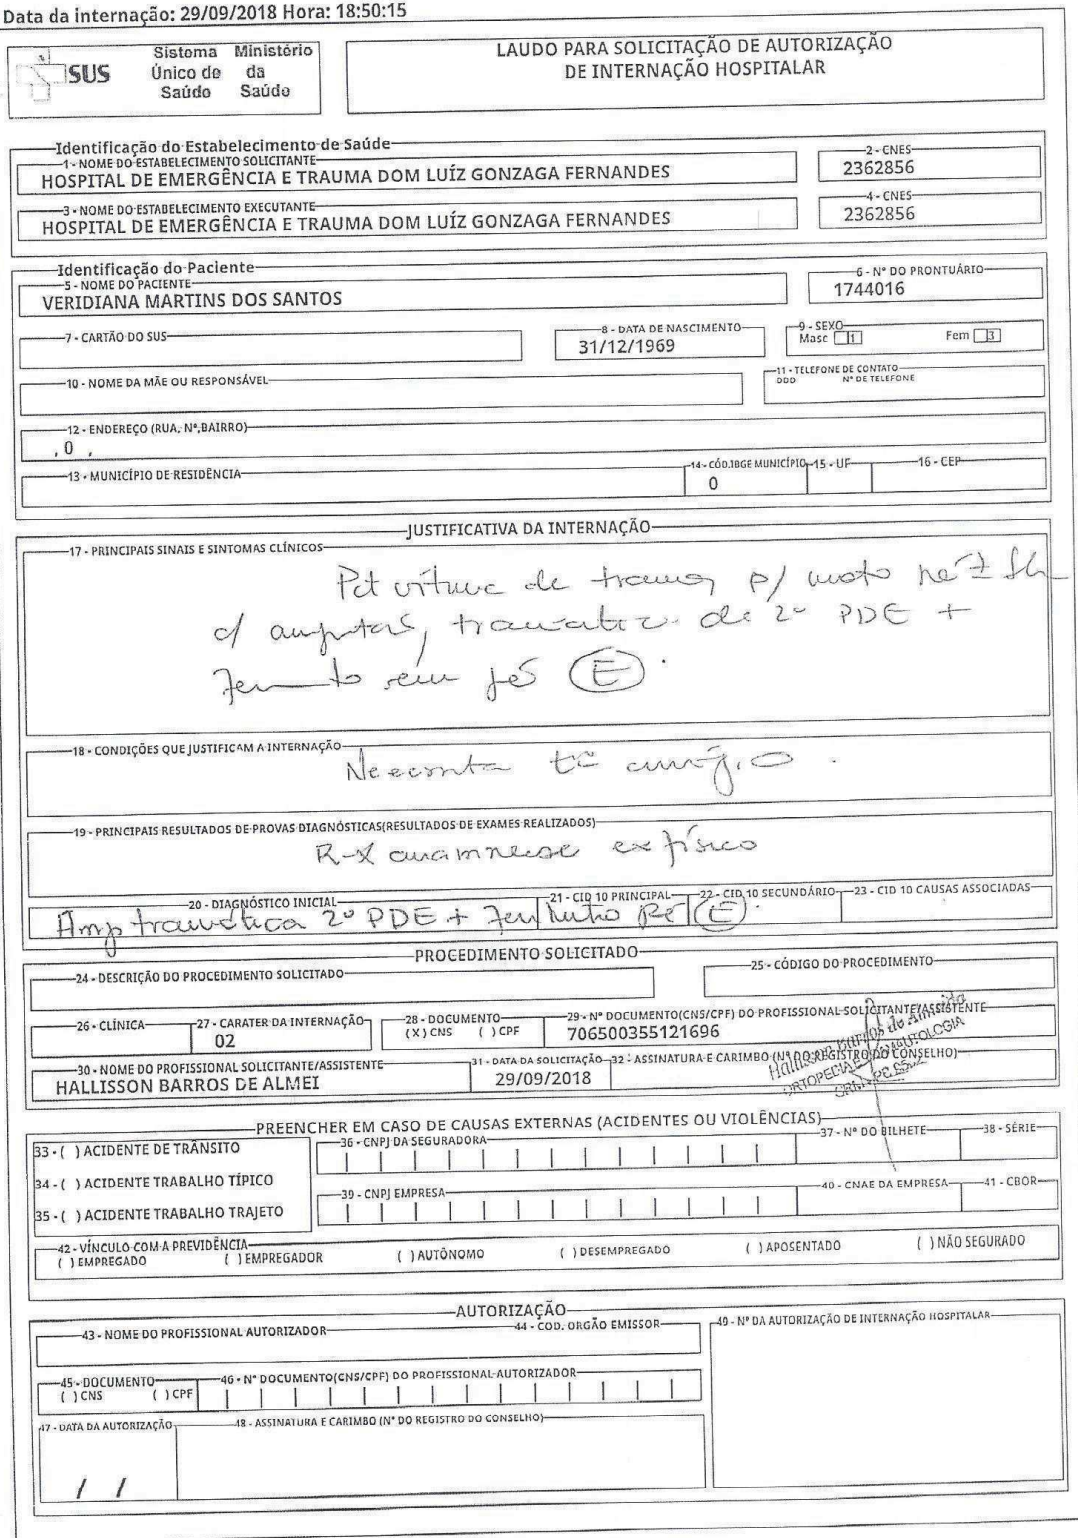 Data da internação: 29/09/2018 Hora: 18:50:15
SUS
Sistema Único de Saúde
Ministério da Saúde
LAUDO PARA SOLICITAÇÃO DE AUTORIZAÇÃO
DE INTERNAÇÃO HOSPITALAR
Identificação do Estabelecimento de Saúde
1 - NOME DO ESTABELECIMENTO SOLICITANTE
HOSPITAL DE EMERGÊNCIA E TRAUMA DOM LUÍZ GONZAGA FERNANDES
2 - CNES
2362856
3 - NOME DO ESTABELECIMENTO EXECUTANTE
HOSPITAL DE EMERGÊNCIA E TRAUMA DOM LUÍZ GONZAGA FERNANDES
4 - CNES
2362856
Identificação do Paciente
5 - NOME DO PACIENTE
VERIDIANA MARTINS DOS SANTOS
6 - Nº DO PRONTUÁRIO
1744016
7 - CARTÃO DO SUS
8 - DATA DE NASCIMENTO
31/12/1969
9 - SEXO
Masc 1 Fem 3
10 - NOME DA MÃE OU RESPONSÁVEL
11 - TELEFONE DE CONTATO
DDD Nº DE TELEFONE
12 - ENDEREÇO (RUA, Nº,BAIRRO)
, 0 ,
13 - MUNICÍPIO DE RESIDÊNCIA
14 - CÓD.IBGE MUNICÍPIO
0
15 - UF
16 - CEP
JUSTIFICATIVA DA INTERNAÇÃO
17 - PRINCIPAIS SINAIS E SINTOMAS CLÍNICOS
Pct vítima de trauma p/ moto
c/ amputaç traumatic. de 2º PDE +
pé (E).
18 - CONDIÇÕES QUE JUSTIFICAM A INTERNAÇÃO
Necessita
19 - PRINCIPAIS RESULTADOS DE PROVAS DIAGNÓSTICAS(RESULTADOS DE EXAMES REALIZADOS)
R-X anamnese ex físico
20 - DIAGNÓSTICO INICIAL
21 - CID 10 PRINCIPAL
22 - CID 10 SECUNDÁRIO
23 - CID 10 CAUSAS ASSOCIADAS
Amp traumática 2º PDE + Pé (E).
PROCEDIMENTO SOLICITADO
24 - DESCRIÇÃO DO PROCEDIMENTO SOLICITADO
25 - CÓDIGO DO PROCEDIMENTO
26 - CLÍNICA
27 - CARATER DA INTERNAÇÃO
02
28 - DOCUMENTO
( X ) CNS ( ) CPF
29 - Nº DOCUMENTO(CNS/CPF) DO PROFISSIONAL SOLICITANTE/ASSISTENTE
706500355121696
30 - NOME DO PROFISSIONAL SOLICITANTE/ASSISTENTE
HALLISSON BARROS DE ALMEI
31 - DATA DA SOLICITAÇÃO
29/09/2018
32 - ASSINATURA E CARIMBO (Nº DO REGISTRO DO CONSELHO)
Hallisson Barros de Almeida
ORTOPEDIA E TRAUMATOLOGIA
PREENCHER EM CASO DE CAUSAS EXTERNAS (ACIDENTES OU VIOLÊNCIAS)
33 - ( ) ACIDENTE DE TRÂNSITO
34 - ( ) ACIDENTE TRABALHO TÍPICO
35 - ( ) ACIDENTE TRABALHO TRAJETO
36 - CNPJ DA SEGURADORA
37 - Nº DO BILHETE
38 - SÉRIE
39 - CNPJ EMPRESA
40 - CNAE DA EMPRESA
41 - CBOR
42 - VÍNCULO COM A PREVIDÊNCIA
( ) EMPREGADO ( ) EMPREGADOR ( ) AUTÔNOMO ( ) DESEMPREGADO ( ) APOSENTADO ( ) NÃO SEGURADO
AUTORIZAÇÃO
43 - NOME DO PROFISSIONAL AUTORIZADOR
44 - COD. ORGÃO EMISSOR
49 - Nº DA AUTORIZAÇÃO DE INTERNAÇÃO HOSPITALAR
45 - DOCUMENTO
( ) CNS ( ) CPF
46 - Nº DOCUMENTO(CNS/CPF) DO PROFISSIONAL AUTORIZADOR
47 - DATA DA AUTORIZAÇÃO
/ /
48 - ASSINATURA E CARIMBO (Nº DO REGISTRO DO CONSELHO)